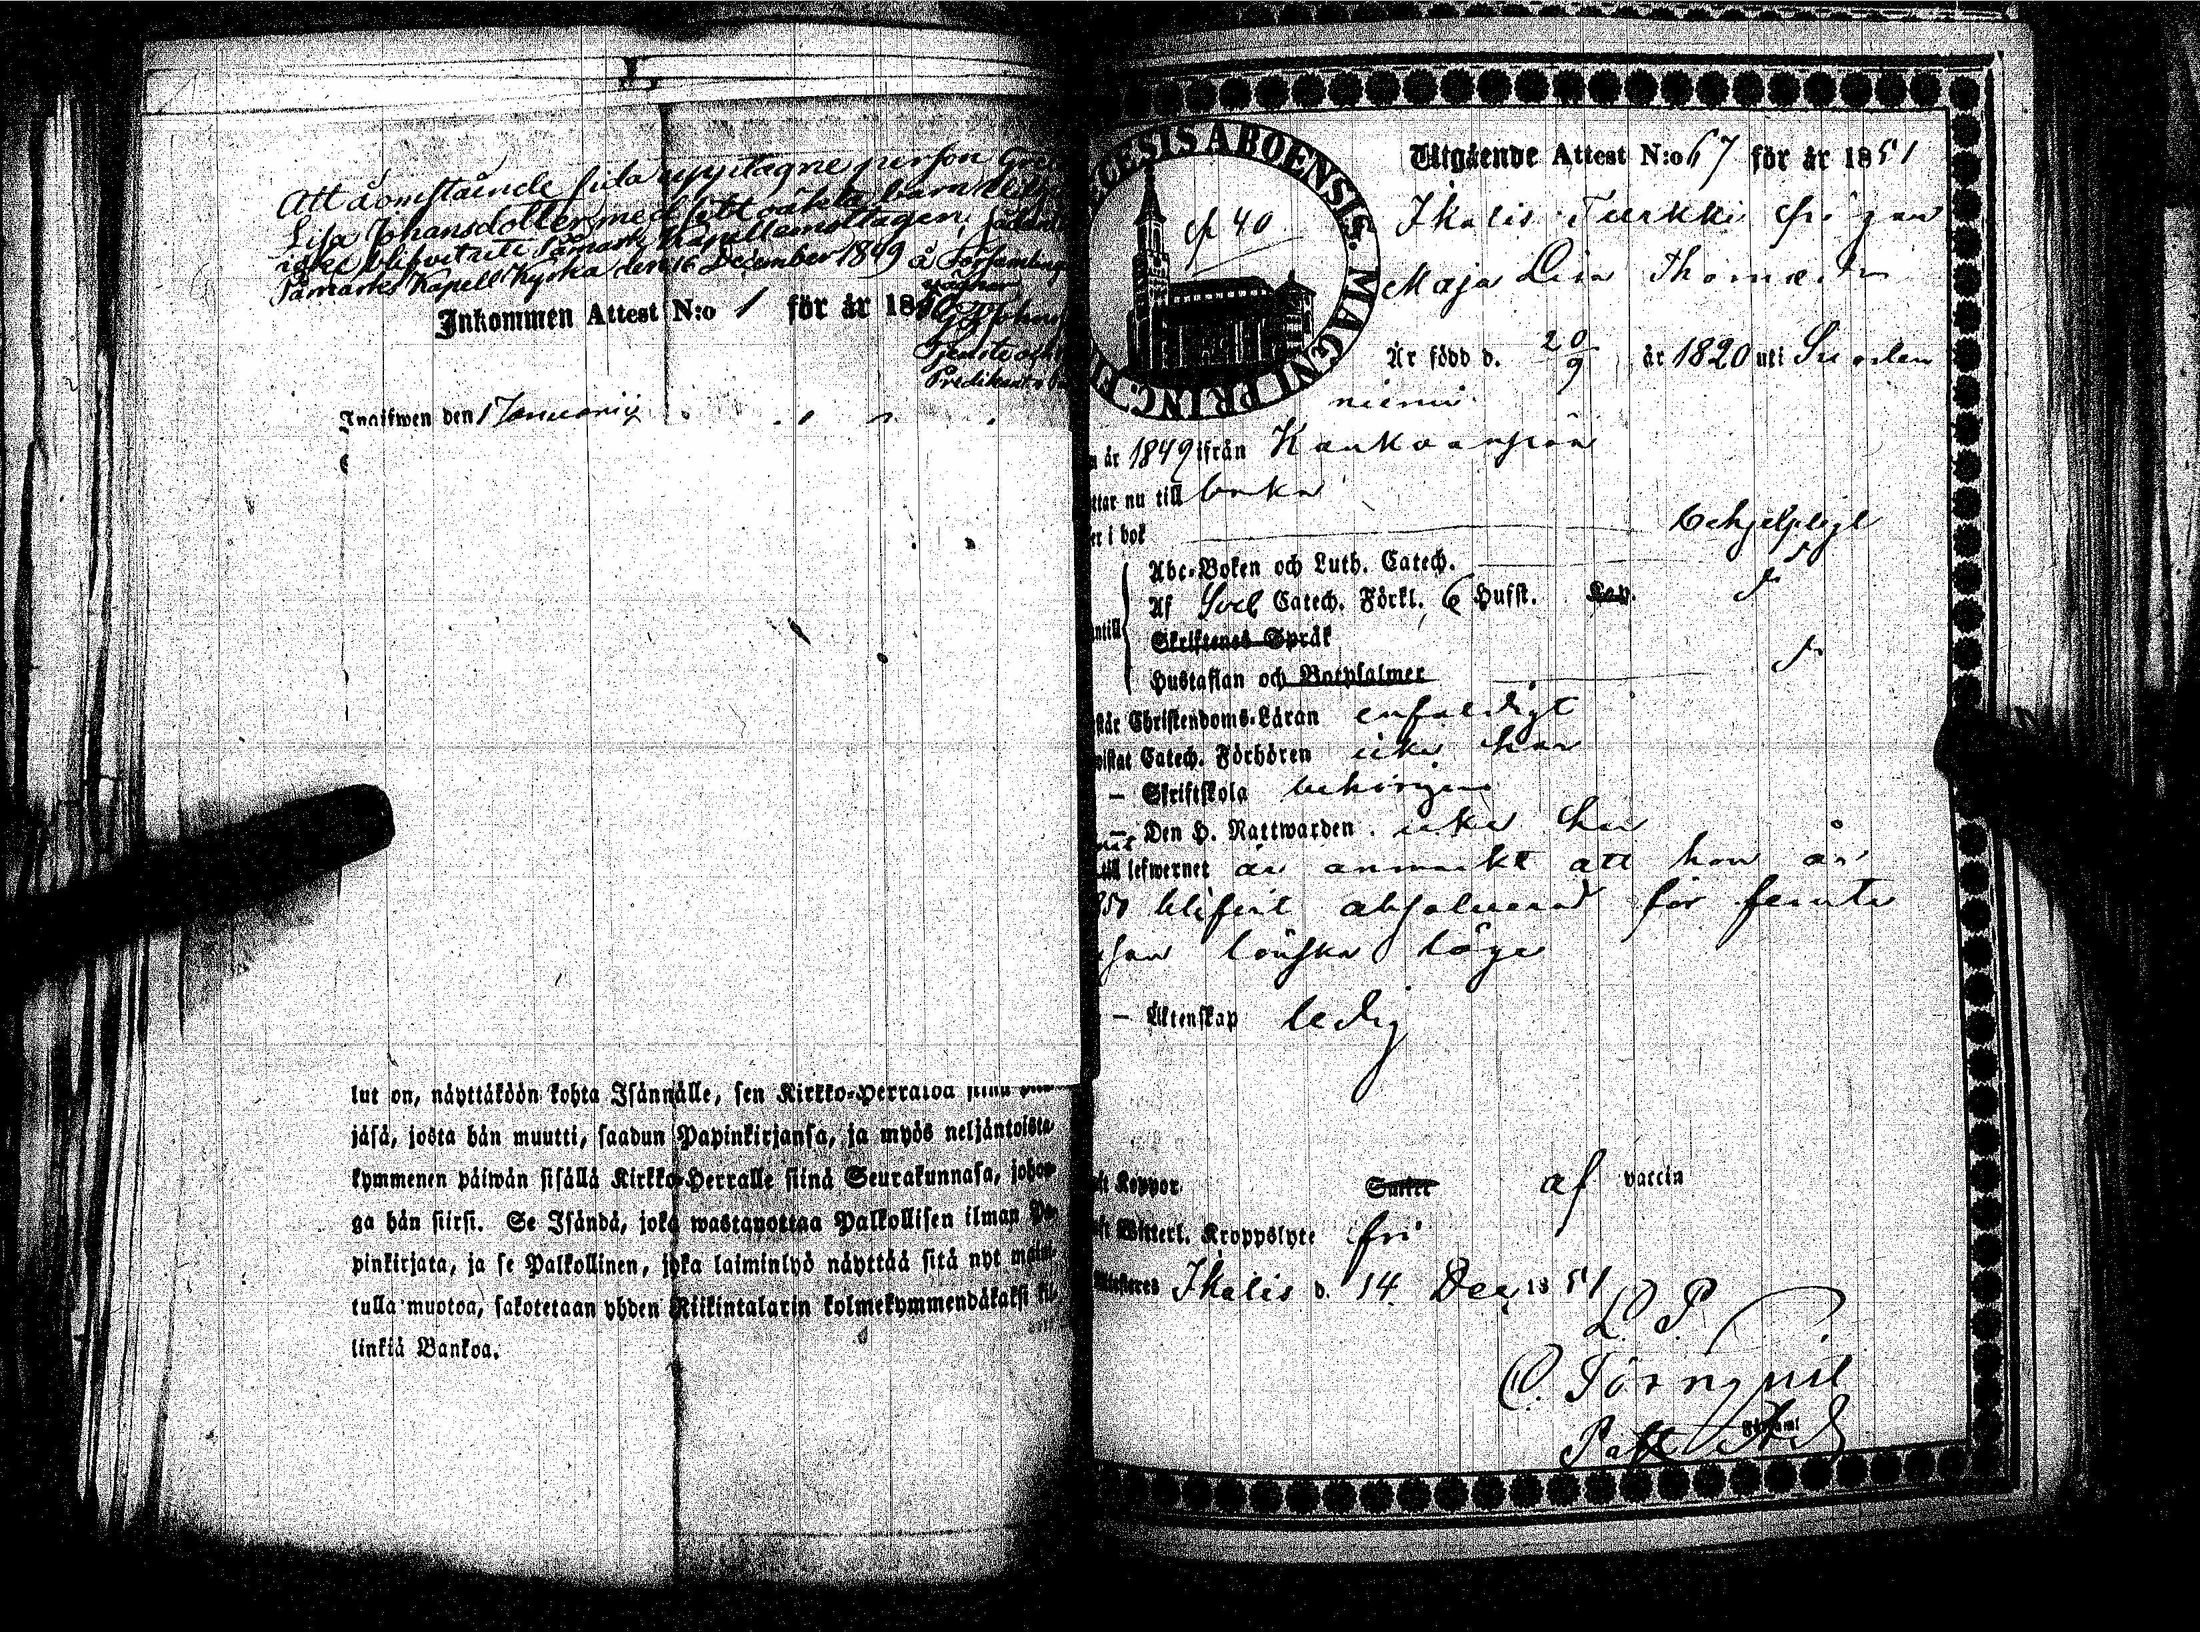 L
Att å omstående sida upptagne person
Lisa Johansdotter med sitt oäkta barn
Påmarks Kapell Kyrka den 16 December 1849 å Församlings
Inkommen Attest N:o 1 för år 18
Predikant
Ingifwen den 1 Januarij
lut on, näyttäköön kohta Isännälle, sen Kirkko-Herralda
jäsä, josta hän muutti, saadun Papinkirjansa, ja myös neljäntoista
kymmenen päiwän sisällä Kirkko-Herralle siinä Seurakunnasa, johon
ga hän siirsi. Se Isändä, joka wastanottaa Palkollisen ilman Pa-
pinkirjata, ja se Palkollinen, joka laiminlyö näyttää sitä nyt main-
tulla muotoa, sakotetaan yhden Riikintalarin kolmekymmendäkaksi kil-
linkiä Bankoa.
DIOECESIS ABOENSIS. MAGNI PRINC. FI
40
Utgående Attest N:o 67 för år 1851
Ikalis Turkki Pigan
Maja Lisa Thomædr
Är född d. 20/9 år 1820 uti Suoden
niemi
år 1849 ifrån Kankaanpää
ttar nu till baka
er i bok behjelpligt
Abc-Boken och Luth. Catech.
Af Sveb Catech. Förkl. 6 Hufst. Tav.
ntill
Skriftenes Språk
Hustaflan och Botpsalmer
står Christendoms-Läran enfaldigt
wistat Catech. Förhören icke här
– Skriftskola behörigen
– Den H. Nattwarden icke här
till lefwernet är anmärkt att hon år
850 blifvit absolverad för femte
resan lönska läge
– Äktenskap ledig
Koppor. af vaccin
Witterl. Kroppslyte fri
Attesteras Ikalis d. 14 Dec 1851
C. Törnqvist